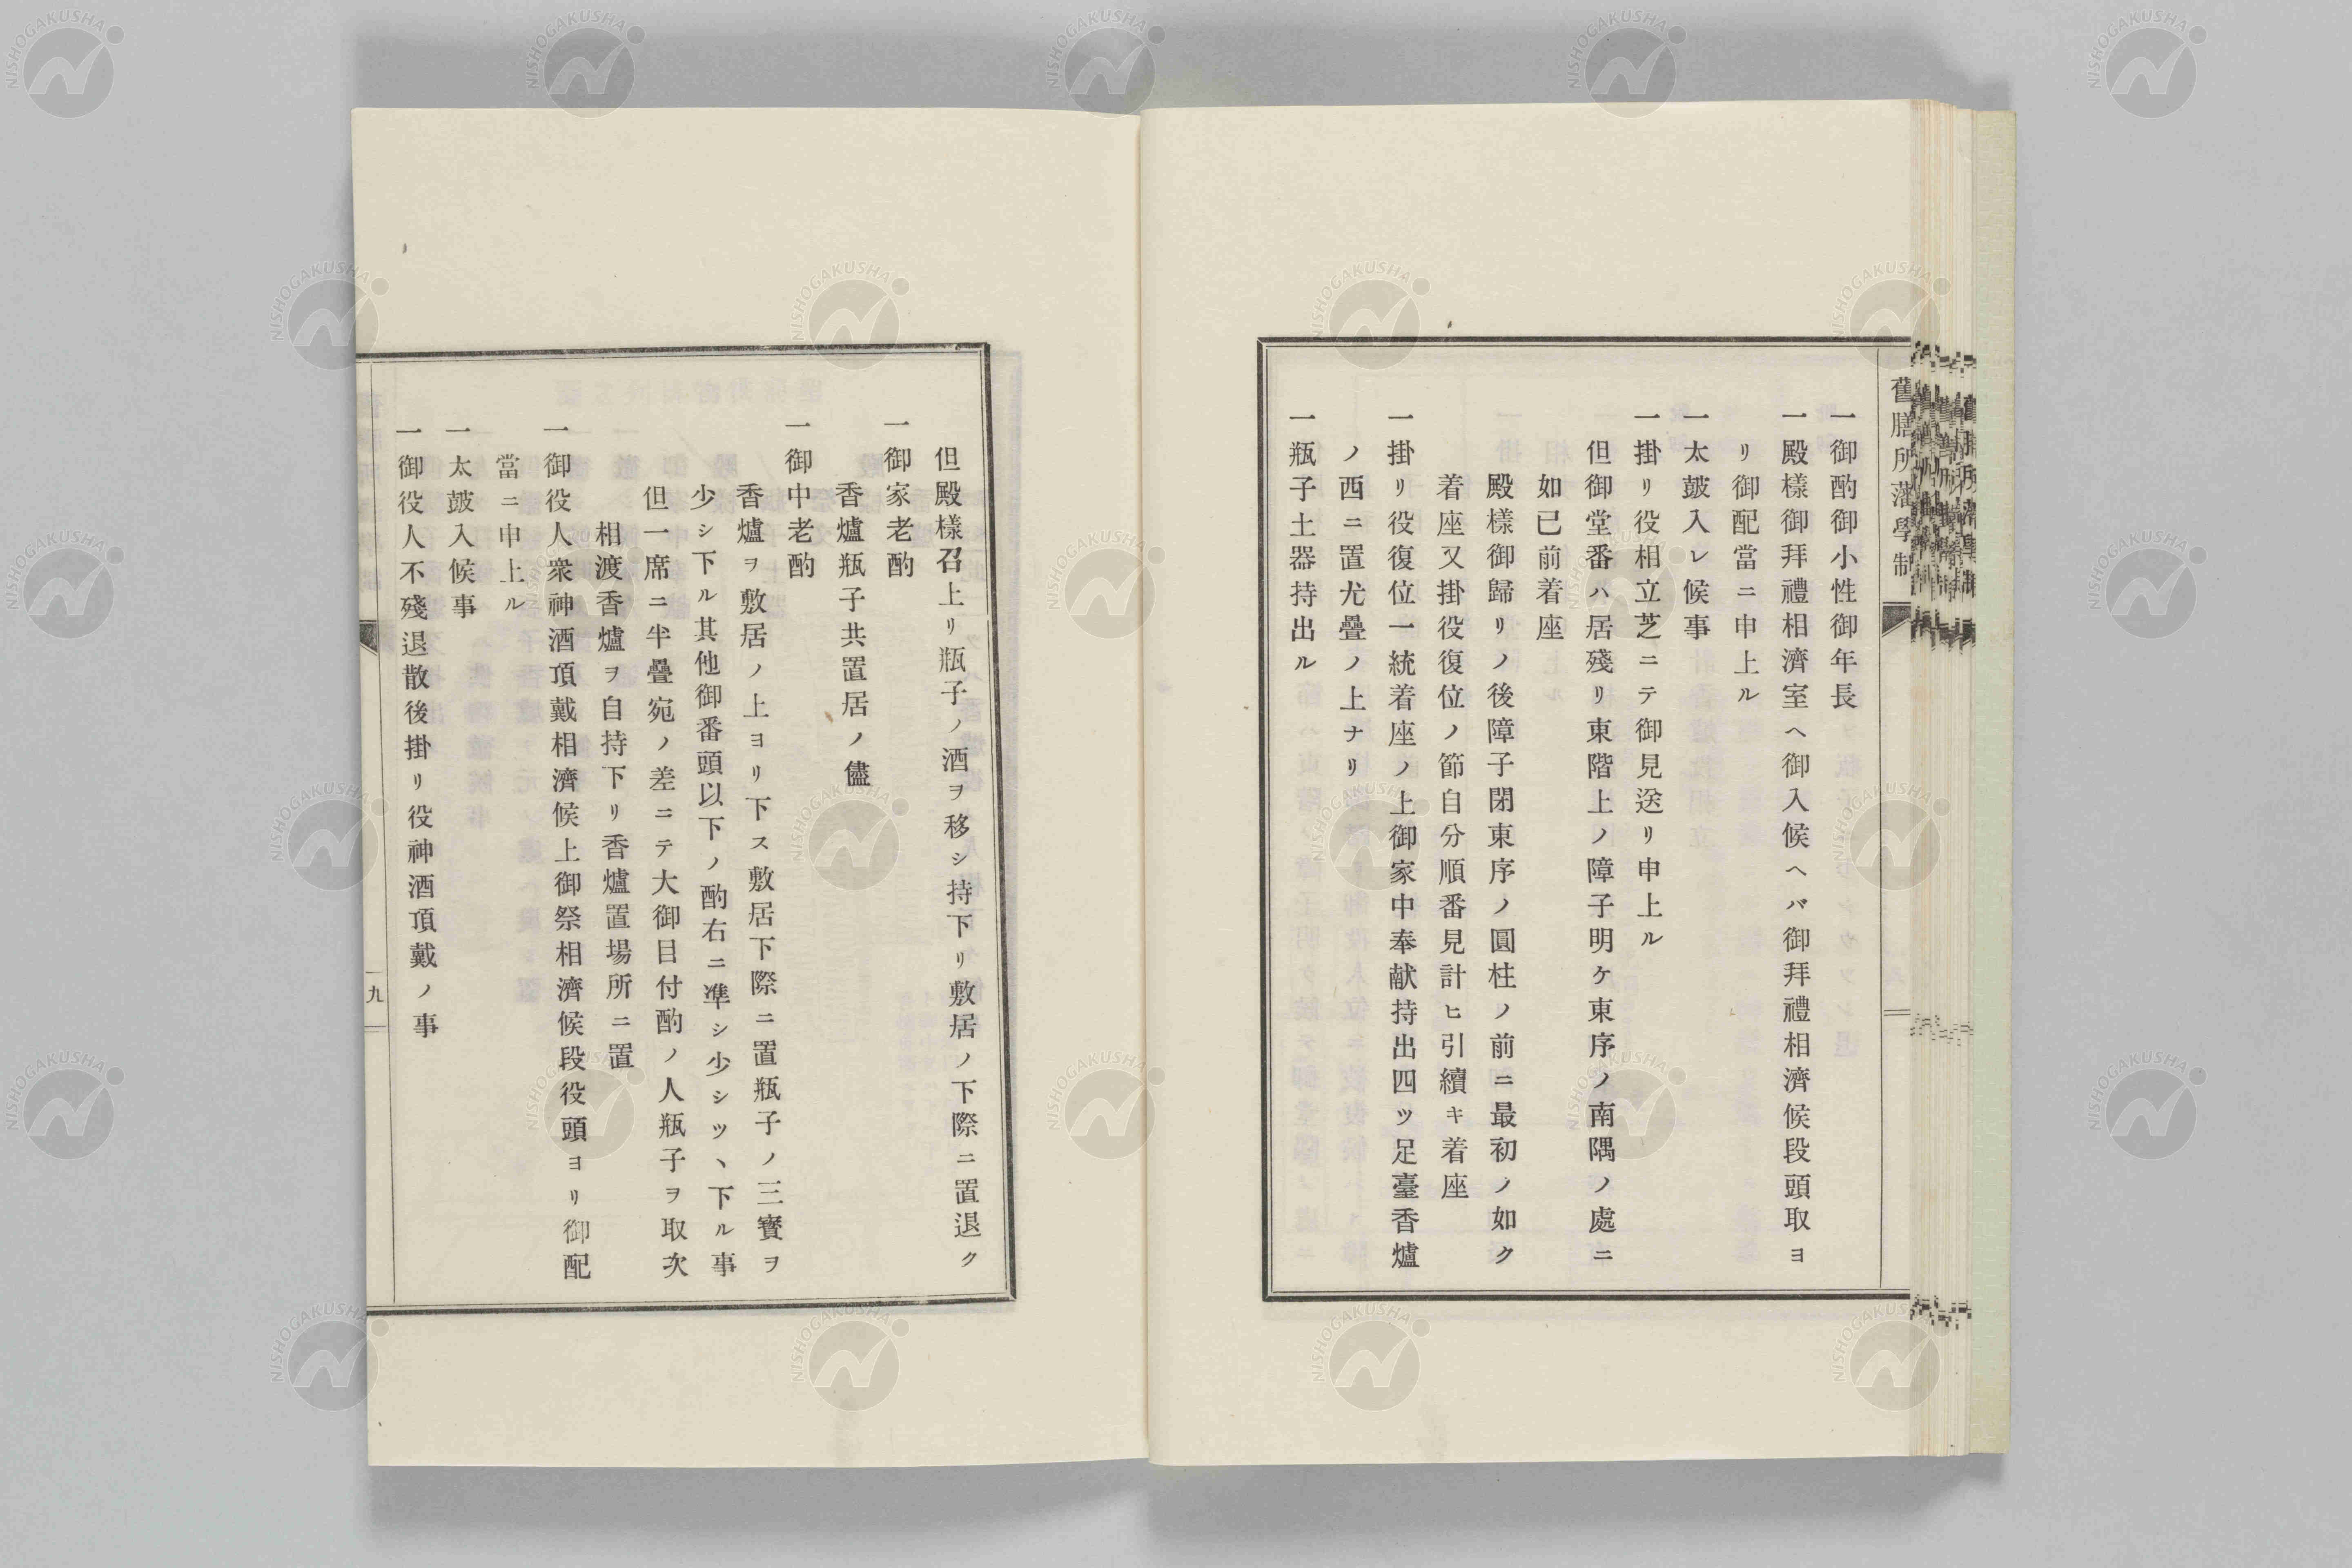 舊膳所藩學制
一御酌御小性御年長
一殿樣御拜禮相濟室ヘ御入候ヘバ御拜禮相濟候段頭取ヨ
リ御配當ニ申上ル
一太皷入レ候事
一掛リ役相立芝ニテ御見送リ申上ル
但御堂番ハ居殘リ東階上ノ障子明ケ東序ノ南隅ノ處ニ
如已前着座
殿樣御歸リノ後障子閉東序ノ圓柱ノ前ニ最初ノ如ク
着座又掛役復位ノ節自分順番見計ヒ引續キ着座
一掛リ役復位一統着座ノ上御家中奉献持出四ツ足臺香爐
ノ西ニ置尤疊ノ上ナリ
一瓶子土器持出ル
但殿樣召上リ瓶子ノ酒ヲ移シ持下リ敷居ノ下際ニ置退ク
一御家老酌
香爐瓶子共置居ノ儘
一御中老酌
香爐ヲ敷居ノ上ヨリ下ス敷居下際ニ置瓶子ノ三寶ヲ
少シ下ル其他御番頭以下ノ酌右ニ準シ少シツヽ下ル事
但一席ニ半疊宛ノ差ニテ大御目付酌ノ人瓶子ヲ取次
相渡香爐ヲ自持下リ香爐置場所ニ置
一御役人衆神酒頂戴相濟候上御祭相濟候段役頭ヨリ御配
當ニ申上ル
一太皷入候事
一御役人不殘退散後掛リ役神酒頂戴ノ事
九
NISHOGAKUSHA